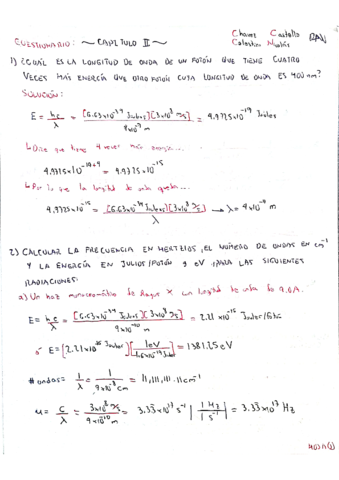 CUESTIONARIO: ~ CAPITULO II ~
Chaves Castello
Celestino Nicolás
1) ¿CUÁL ES LA LONGITUD DE ONDA DE UN FOTÓN QUE TIENE CUATRO
VECES MÁS ENERGÍA QUE OTRO FOTÓN CUYA LONGITUD DE ONDA ES 400 nm?
SOLUCIÓN:
E = hc/λ = [6.63x10⁻³⁴ Joules][3x10⁸ m/s] / 4x10⁻⁷ m = 4.9725x10⁻¹⁹ Joules
↳ Dice que tiene 4 veces más energía...
4.9725x10⁻¹⁹⁺⁴ = 4.9725x10⁻¹⁵
↳ Por lo que la longitud de onda queda...
4.9725x10⁻¹⁵ = [6.63x10⁻³⁴ Joules][3x10⁸ m/s] / λ → λ = 4x10⁻¹¹ m
2) CALCULAR LA FRECUENCIA EN HERTZIOS, EL NÚMERO DE ONDAS EN cm⁻¹
Y LA ENERGÍA EN JULIOS/FOTÓN Y eV, PARA LAS SIGUIENTES
RADIACIONES:
a) Un haz monocromático de Rayos X con longitud de onda de 9.0A.
E = hc/λ = [6.63x10⁻³⁴ Joules][3x10⁸ m/s] / 9x10⁻¹⁰ m = 2.21x10⁻¹⁶ Joules/fotón
ó E = [2.21x10⁻¹⁶ Joules][1eV / 1.6x10⁻¹⁹ Joules] = 1381.25 eV
# ondas = 1/λ = 1 / 9x10⁻⁸ cm = 11,111,111.11 cm⁻¹
ν = c/λ = 3x10⁸ m/s / 9x10⁻¹⁰ m = 3.33x10¹⁷ s⁻¹ | 1 Hz / 1 s⁻¹ | = 3.33x10¹⁷ Hz